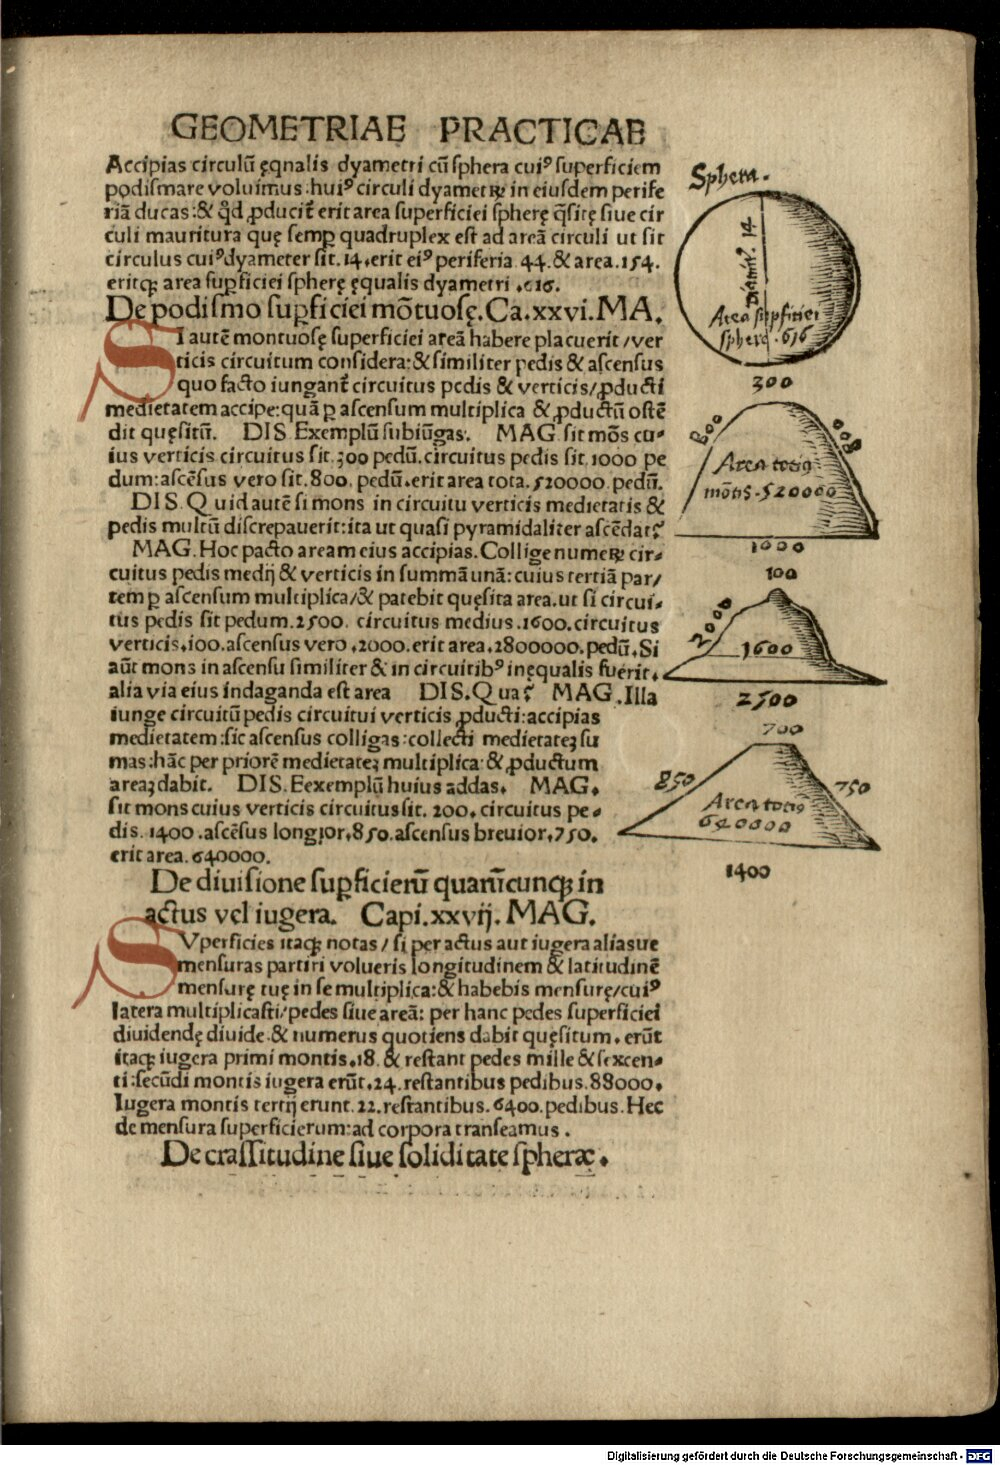 GEOMETRIAE PRACTICAE
Accipias circulū ęqnalis dyametri cū sphera cuiꝰ superficiem
podismare voluimus :huiꝰ circuli dyametꝝ in eiusdem perife
riā ducas :& qd̄ ꝓducit̄ erit area superficiei spherę q̄sitę siue cir
culi mauritura quę semꝑ quadruplex est ad areā circuli ut sit
circulus cuiꝰ dyameter sit .14. erit eiꝰ periferia 44. & area .154.
eritqꝫ area suꝑficiei spherę ęqualis dyametri .616.
De podismo suꝑficiei mōtuosę. Ca.xxvi. MA.
SI autē montuosę superficiei areā habere placuerit / ver
ticis circuitum considera: & similiter pedis & ascensus
quo facto iungant̄ circuitus pedis & verticis / ꝓducti
medietatem accipe: quā ꝑ ascensum multiplica & ꝓductū ostē
dit quęsitū. DIS Exemplū subiūgas. MAG sit mōs cu-
ius verticis circuitus sit .300 pedū. circuitus pedis sit .1000 pe
dum: ascēsus vero sit .800. pedū. erit area tota .520000. pedū.
DIS. Quid autē si mons in circuitu verticis medietatis &
pedis multū discrepauerit: ita ut quasi pyramidaliter ascēdat?
MAG. Hoc pacto aream eius accipias. Collige numeꝝ cir-
cuitus pedis medij & verticis in summā unā: cuius tertiā par/
tem ꝑ ascensum multiplica / & patebit quęsita area. ut si circui-
tus pedis sit pedum .2500. circuitus medius .1600. circuitus
verticis .100. ascensus vero .2000. erit area .2800000. pedū. Si
aūt mons in ascensu similiter & in circuitibꝰ inęqualis fuerit.
alia via eius indaganda est area DIS. Qua? MAG. Illa
iunge circuitū pedis circuitui verticis ꝓducti: accipias
medietatem: sic ascensus colligas: collecti medietateꝫ su
mas: hāc per priorē medietateꝫ multiplica: & ꝓductum
areaꝫ dabit. DIS. Eexemplū huius addas. MAG.
sit mons cuius verticis circuitus sit. 200. circuitus pe-
dis. 1400. ascēsus longior. 850. ascensus breuior. 750.
erit area. 640000.
De diuisione suꝑficierū quarūcunqꝫ in
actus vel iugera. Capi. xxvij. MAG.
SVperficies itaqꝫ notas / si per actus aut iugera aliasue
mensuras partiri volueris longitudinem & latitudinē
mensurę tuę in se multiplica: & habebis mensurę / cuiꝰ
latera multiplicasti / pedes siue areā: per hanc pedes superficiei
diuidendę diuide. & numerus quotiens dabit quęsitum. erūt
itaqꝫ iugera primi montis .18. & restant pedes mille & sexcen-
ti: secūdi montis iugera erūt .24. restantibus pedibus .88000.
Iugera montis tertij erunt. 22. restantibus. 6400. pedibus. Hec
de mensura superficierum: ad corpora transeamus.
De crassitudine siue soliditate spheræ.
Sphera.
Diametꝰ. 14
Area suꝑficiei
spherę .616
300
800
800
Area totiꝰ
mōtis .520000
1000
100
2000
1600
2500
700
850
750
Area totiꝰ
640000
1400
Digitalisierung gefördert durch die Deutsche Forschungsgemeinschaft - DFG